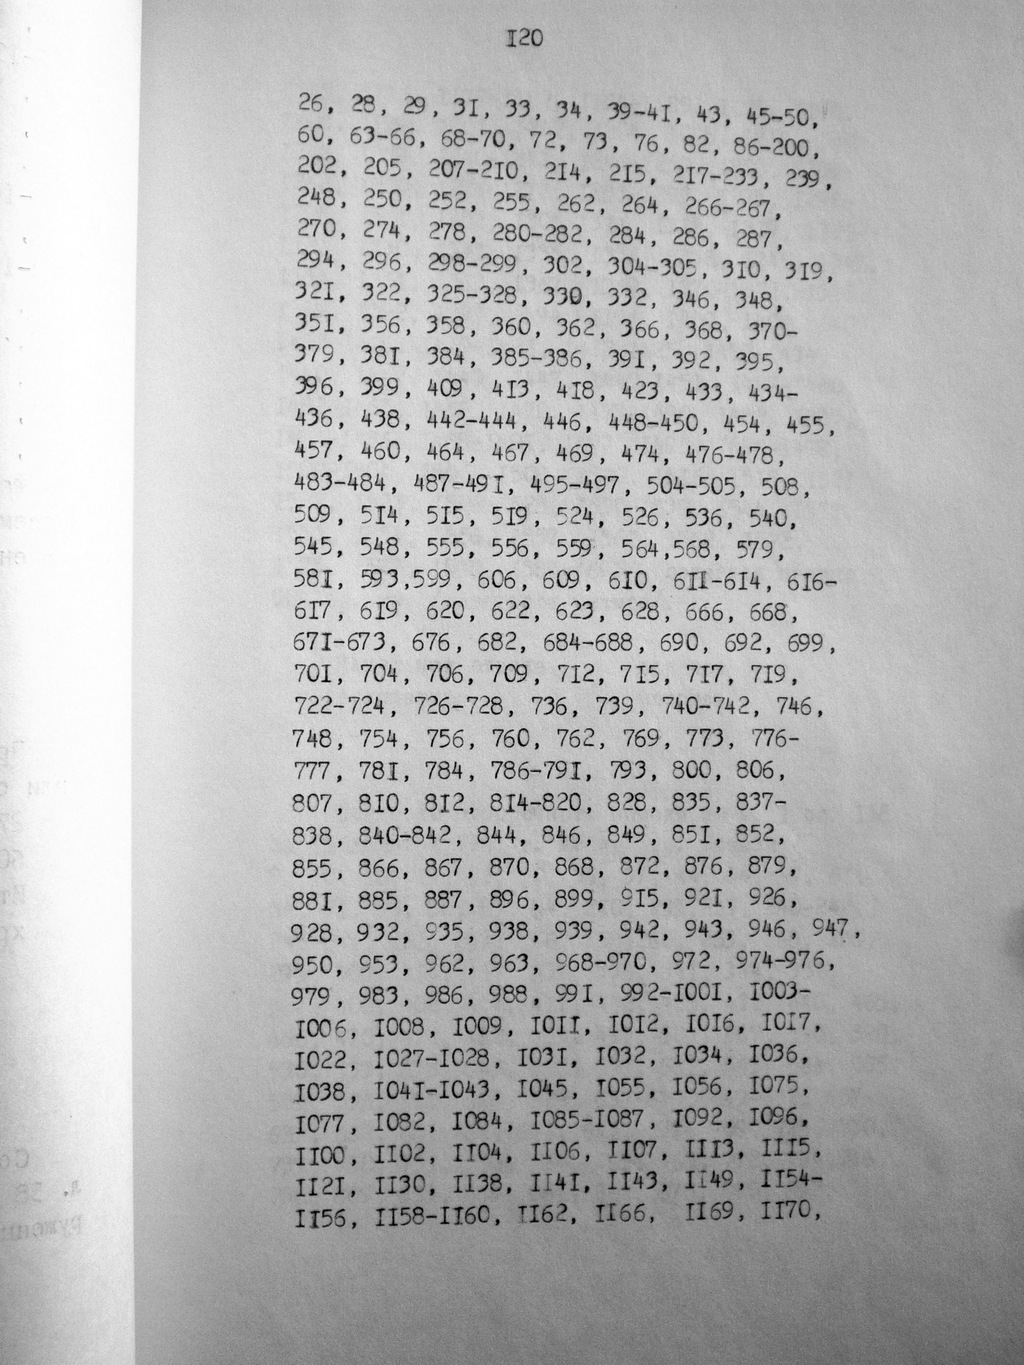 I20
26, 28, 29, 3I, 33, 34, 39-4I, 43, 45-50,
60, 63-66, 68-70, 72, 73, 76, 82, 86-200,
202, 205, 207-2I0, 2I4, 2I5, 2I7-233, 239,
248, 250, 252, 255, 262, 264, 266-267,
270, 274, 278, 280-282, 284, 286, 287,
294, 296, 298-299, 302, 304-305, 3I0, 3I9,
32I, 322, 325-328, 330, 332, 346, 348,
35I, 356, 358, 360, 362, 366, 368, 370-
379, 38I, 384, 385-386, 39I, 392, 395,
396, 399, 409, 4I3, 4I8, 423, 433, 434-
436, 438, 442-444, 446, 448-450, 454, 455,
457, 460, 464, 467, 469, 474, 476-478,
483-484, 487-49I, 495-497, 504-505, 508,
509, 5I4, 5I5, 5I9, 524, 526, 536, 540,
545, 548, 555, 556, 559, 564,568, 579,
58I, 593,599, 606, 609, 6I0, 6II-6I4, 6I6-
6I7, 6I9, 620, 622, 623, 628, 666, 668,
67I-673, 676, 682, 684-688, 690, 692, 699,
70I, 704, 706, 709, 7I2, 7I5, 7I7, 7I9,
722-724, 726-728, 736, 739, 740-742, 746,
748, 754, 756, 760, 762, 769, 773, 776-
777, 78I, 784, 786-79I, 793, 800, 806,
807, 8I0, 8I2, 8I4-820, 828, 835, 837-
838, 840-842, 844, 846, 849, 85I, 852,
855, 866, 867, 870, 868, 872, 876, 879,
88I, 885, 887, 896, 899, 9I5, 92I, 926,
928, 932, 935, 938, 939, 942, 943, 946, 947,
950, 953, 962, 963, 968-970, 972, 974-976,
979, 983, 986, 988, 99I, 992-I00I, I003-
I006, I008, I009, I0II, I0I2, I0I6, I0I7,
I022, I027-I028, I03I, I032, I034, I036,
I038, I04I-I043, I045, I055, I056, I075,
I077, I082, I084, I085-I087, I092, I096,
II00, II02, II04, II06, II07, III3, III5,
II2I, II30, II38, II4I, II43, II49, II54-
II56, II58-II60, II62, II66, II69, II70,